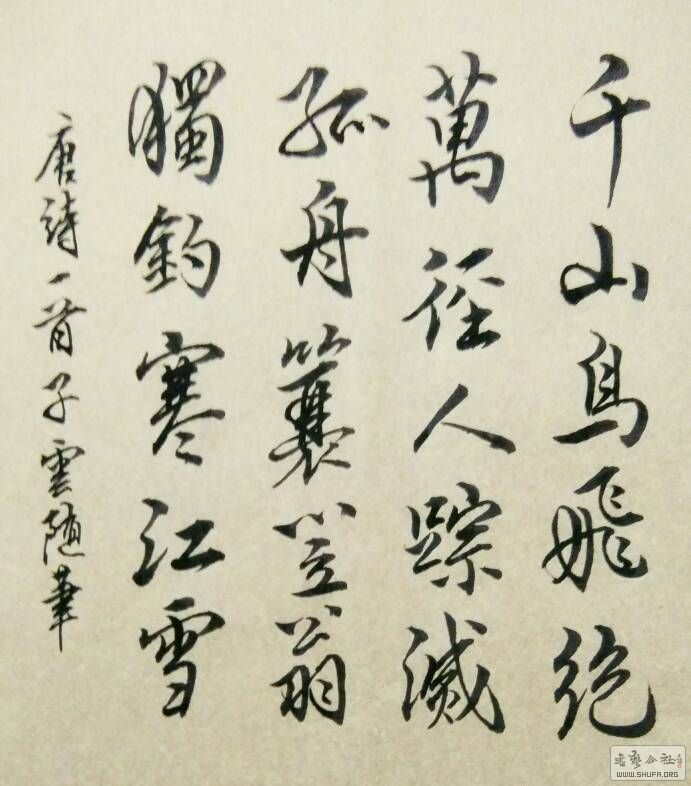 千山鳥飛絕
萬徑人踪滅
孤舟簑笠翁
獨釣寒江雪
唐詩一首子雲隨筆
書藝公社
WWW.SHUFA.ORG